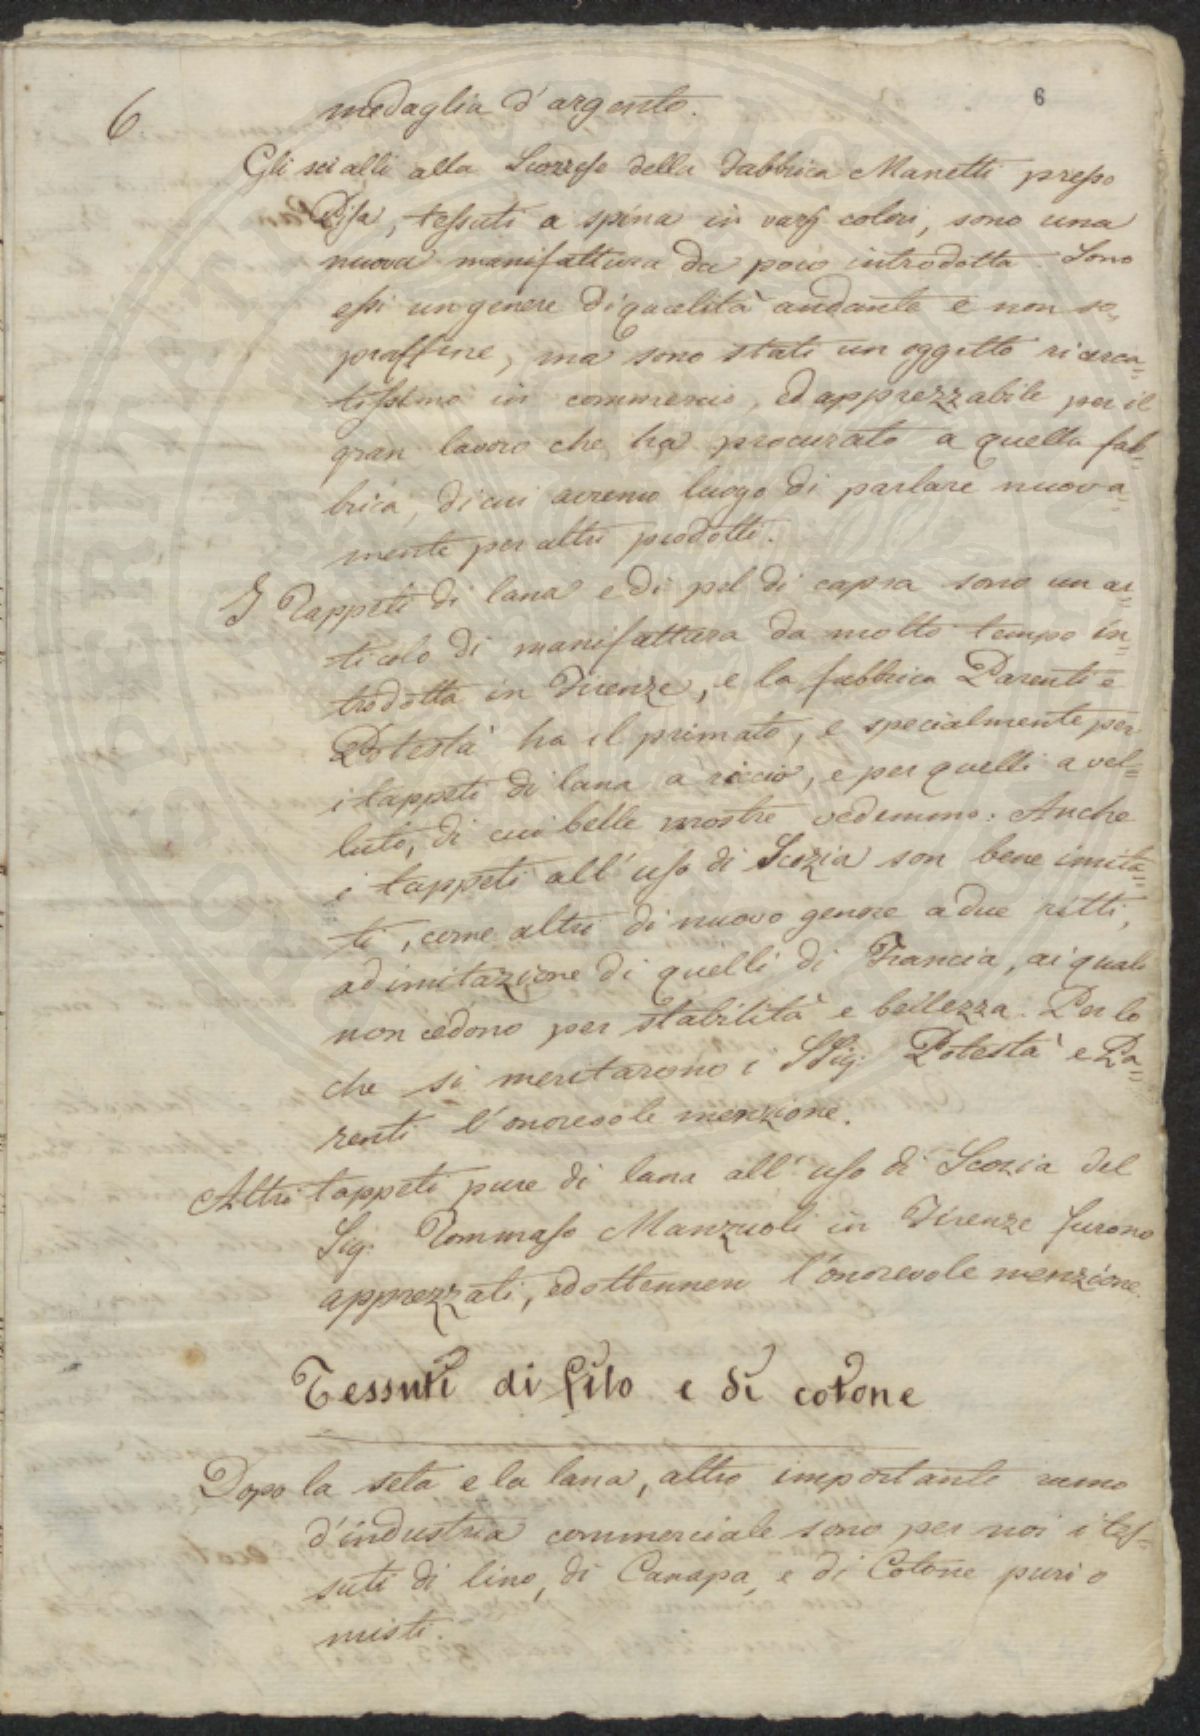 6
6
medaglia d'argento.
Gli scialli alla Scozzese della Fabbrica Manetti presso
Pisa, tessuti a spina in varij colori, sono una
nuova manifattura da poco introdotta. Sono
essi un genere di qualità andante e non so,
praffine, ma sono stati un oggetto ricerca=
tissimo in commercio, ed apprezzabile per il
gran lavoro che ha procurato a quella fab=
brica, di cui avremo luogo di parlare nuova=
mente per altri prodotti.
I Tappeti di lana e di pel di capra sono un ar=
ticolo di manifattura da molto tempo in=
trodotta in Firenze, e la fabbrica Parenti e
Potestà ha il primato, e specialmente per
i tappeti di lana a riccio, e per quelli a vel=
luto, di cui belle mostre vedemmo. Anche
i tappeti all'uso di Scozia son bene imita=
ti, come altri di nuovo genere a due ritti,
ad imitazione di quelli di Francia, ai quali
non cedono per stabilità e bellezza. Per lo
che si meritarono i SSig. Potestà e Pa=
renti l'onorevole menzione.
Altri tappeti pure di lana all'uso di Scozia del
Sig. Tommaso Manzuoli in Firenze furono
apprezzati, ed ottennero l'onorevole menzione.
Tessuti di filo e di cotone
Dopo la seta e la lana, altro importante ramo
d'industria commerciale sono per noi i tes=
suti di lino, di Canapa, e di Cotone puri o
misti.